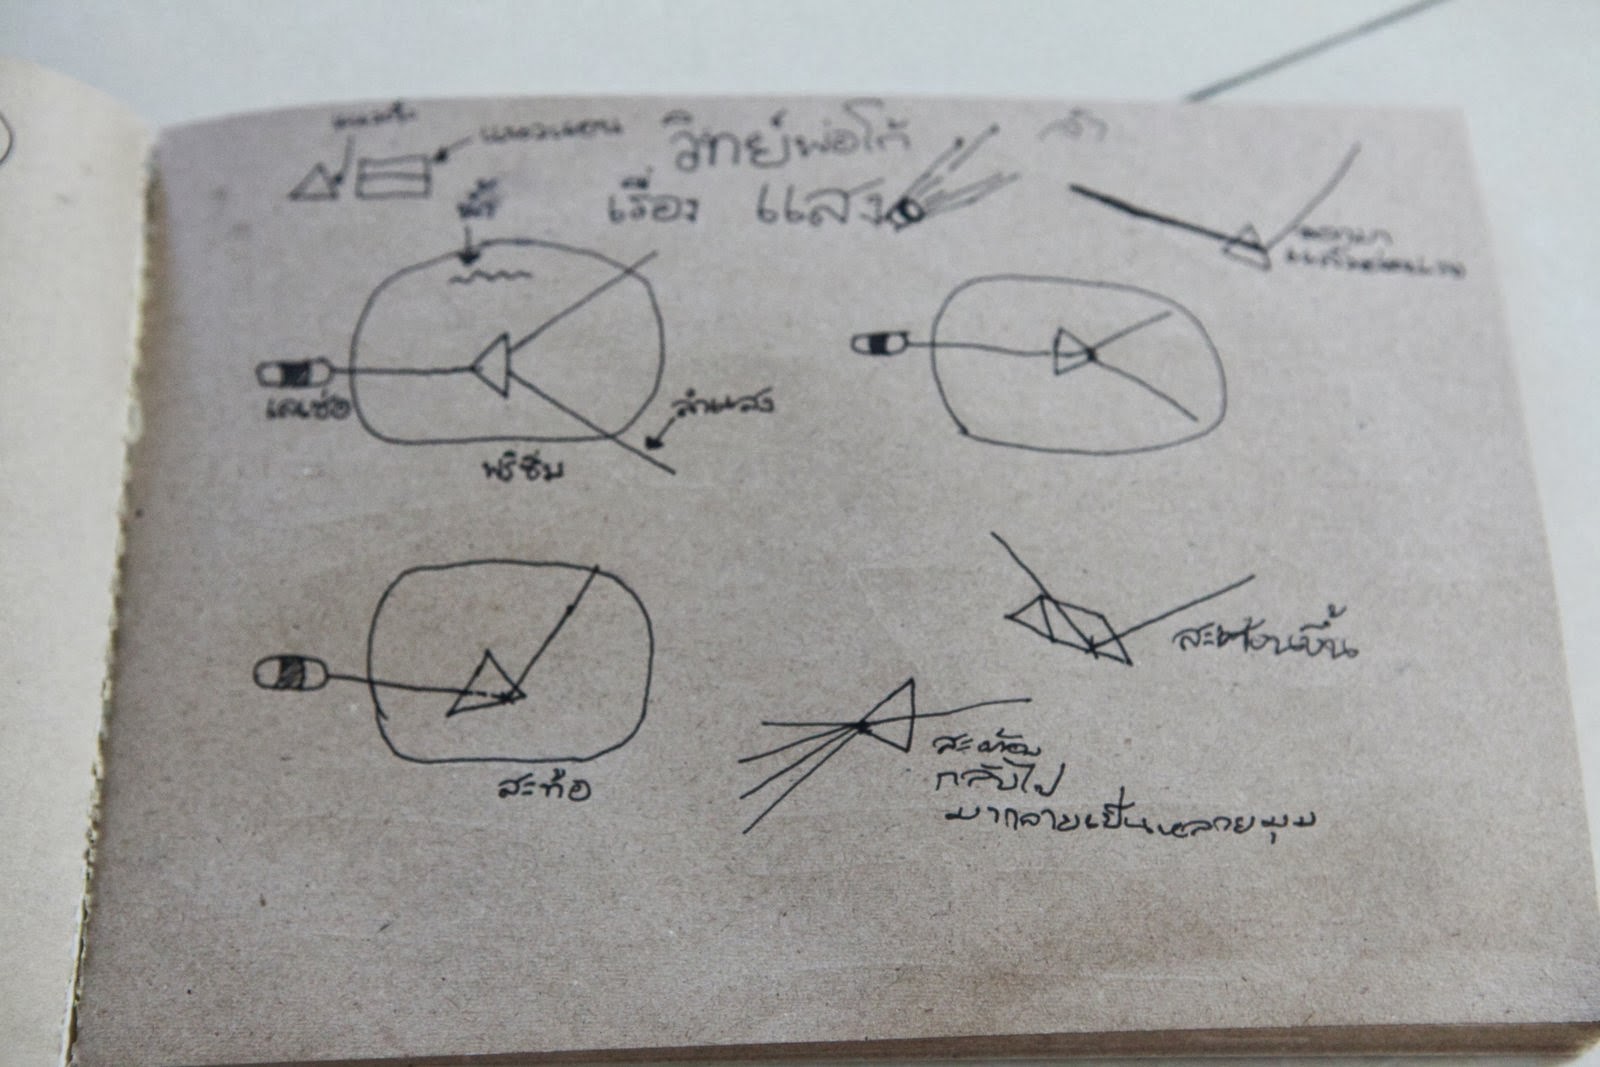 แนวตั้ง
แนวนอน
วิทย์พ่อโก้
เรื่อง แสง
น้ำ
เลเซ่อ
ลำแสง
พริซึม
สะท้อ
สะท้อน
กลับไป
มากลายเป็นหลายมุม